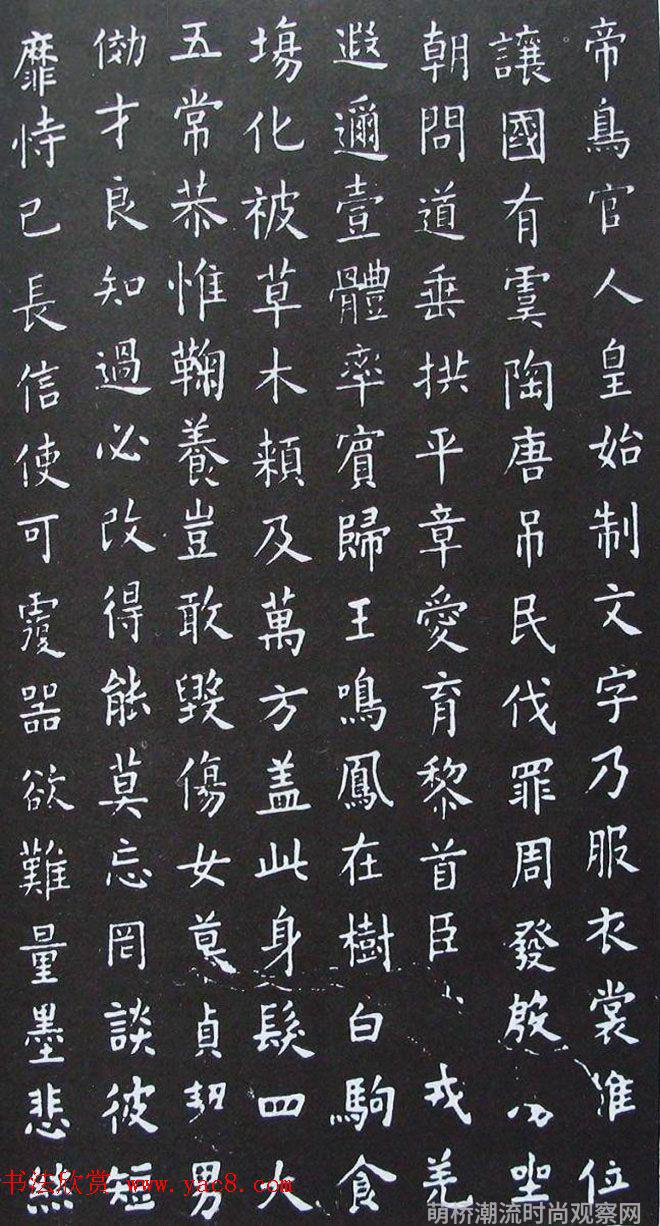 帝鳥官人皇始制文字乃服衣裳推位
讓國有虞陶唐吊民伐罪周發殷坐
朝問道垂拱平章愛育黎首臣戎羌
遐邇壹體率賓歸王鳴鳳在樹白駒食
場化被草木賴及萬方盖此身髮四大
五常恭惟鞠養豈敢毀傷女慕貞男
効才良知過必改得能莫忘罔談彼短
靡恃己長信使可覆器欲難量墨悲
书法欣赏 www.yac8.com
萌桥潮流时尚观察网